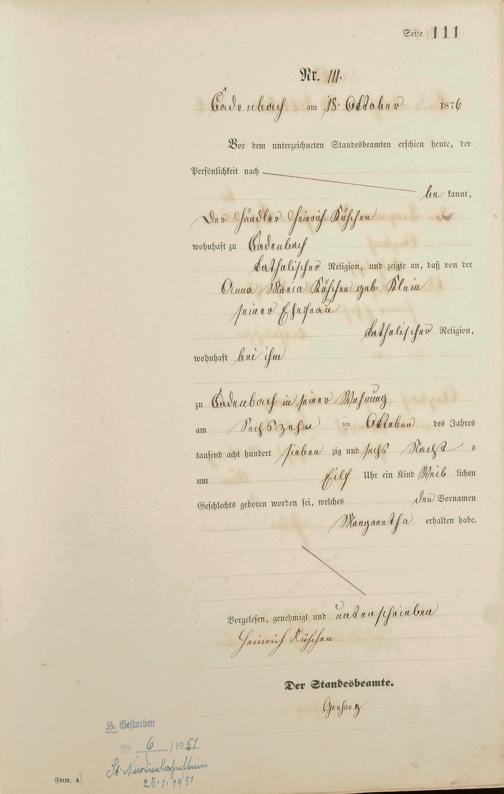 Seite 111
Nr. 111.
Cadenbach am 18. Oktober 1876
Vor dem unterzeichneten Standesbeamten erschien heute, der
Persönlichkeit nach
bekannt,
der Händler Heinrich Küschen
wohnhaft zu Cadenbach
katholischer Religion, und zeigte an, daß von der
Anna Maria Küschen geb Klein
seiner Ehefrau
katholischer Religion,
wohnhaft bei ihm
zu Cadenbach in seiner Wohnung
am Sechszehn ten Oktober des Jahres
tausend acht hundert sieben zig und sechs Nachts
um Eilf Uhr ein Kind Weib lichen
Geschlechts geboren worden sei, welches den Vornamen
Margaretha erhalten habe.
Vorgelesen, genehmigt und unterschrieben
Heinrich Küschen
Der Standesbeamte.
Gestorben
Nr. 6 /1951
25.1.1951
Form. A.